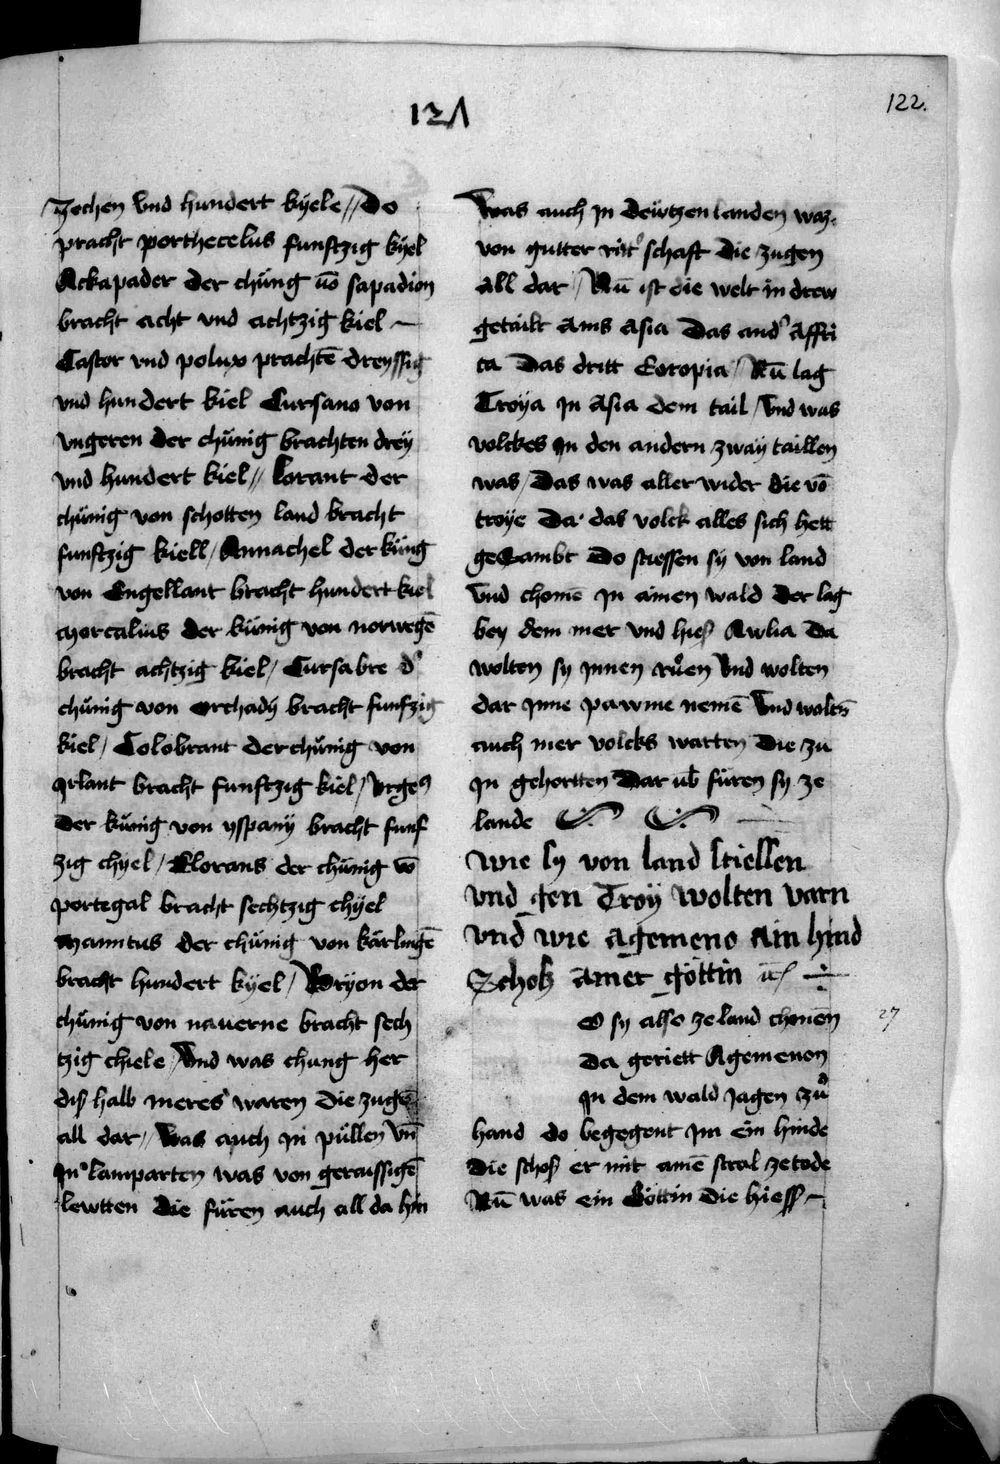 121
122.
zechen vnd hundert kyele // Do
pracht porthecelus funftzig kyel
Ackapader der chünig vō sapadion
bracht acht vnd achtzig kiel
Castor vnd polux prachtē dreyssig
vnd hundert kiel Cursano von
vngeren der chünig brachten drey
vnd hundert kiel // Lorant der
chünig von schotten land bracht
funftzig kiell / Annachel der küng
von Engellant bracht hundert kiel
morcalius der künig von norwegē
bracht achtzig kiel / Cursabre d'
chünig von Orchady bracht funfzig
kiel / Colobrant der chünig von
yrlant bracht funftzig kiel / vrges
der künig von yspany bracht funf
zig chyel / Clorans der chünig vō
portegal bracht sechtzig chyel
Manntus der chünig von kärlingē
bracht hundert kyel / Bryon der
chünig von nauerne bracht sech
tzig chiele / Vnd was chung her
diß halb meres waren die zugē
all dar // Was auch jn püllen vn̄
Jn lamparten was von geraissigē
lewtten die füren auch all da hin
Was auch jn deützen landen waz
von gutter rit'schaft die zugen
all dar / Nū ist die welt in drew
getailt ains Asia das and' Affri
ca Das dritt Eoropia / Nū lag
Troya jn Asia dem tail / vnd was
volckes jn den andern zway taillen
was / Das was aller wider die vō
troye Da das volck alles sich hett
gesambt Do stiessen sy von land
vnd chomē jn ainen wald der lag
bey dem mer vnd hieß Awlia da
wolten sy jnnen růen vnd wolten
dar jnne pawme nemē vnd woltn̄
auch mer volcks watten die zü
jn gehortten Dar vb füren sy ze
lande
wie sy von land stiessen
vnd gen Troy wolten varn
vnd wie agemeno ain hind
Schoß ainer göttin
O sy also ze land chomen
27
Da geriett Agemenon
jn dem wald jagen zů
hand do begegent jm ein hinde
die schoß er mit ainē stral ze tode
Nū was ein Göttin die hieß